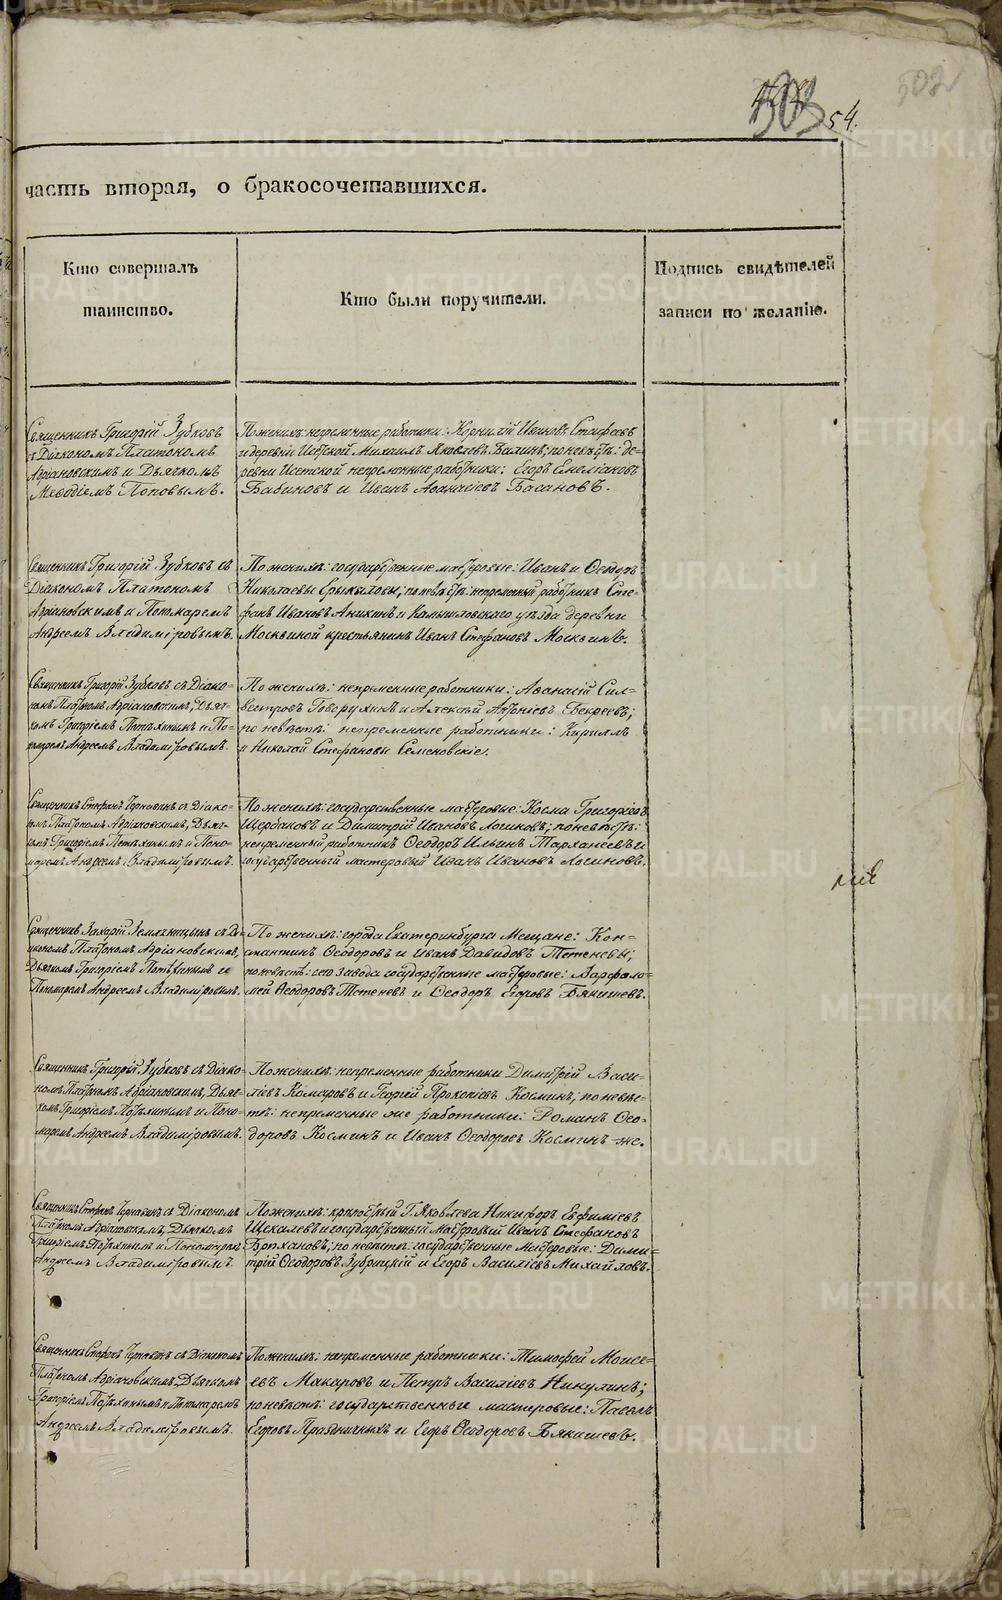 503 54.
502
часть вторая, о бракосочетавшихся.
Кто совершалъ
таинство.
Кто были поручители.
Подпись свидѣтелей
записи по желанію.
Священникъ Григорій Зубковъ
съ Діакономъ Платономъ
Адріановскимъ и Дьячкомъ
Меѳодіемъ Поповымъ.
По женихѣ: непременные работники: Корнилій Ивановъ
и деревни Михаилъ Яковлевъ по невѣстѣ: де-
ревни Исетской непременные работники: Егоръ Емеліановъ
Бабиновъ и Иванъ Аѳанасіевъ Басановъ.
Священникъ Григорій Зубковъ съ
Діакономъ Платономъ
Адріановскимъ и Пономаремъ
Андреемъ Владиміровымъ.
По женихѣ: государственные мастеровые: Иванъ и Ѳеодоръ
Николаевы по невѣстѣ: непременный работникъ Сте-
фанъ Ивановъ и Камышловскаго уѣзда деревни
Москвиной крестьянинъ Иванъ Стефановъ Москвинъ.
Священникъ Григорій Зубковъ съ Діако-
номъ Платономъ Адріановскимъ, Дьяч-
комъ Григоріемъ Потѣхинымъ и По-
номаремъ Андреемъ Владиміровымъ.
По женихѣ: непременные работники: Аѳанасій Сил-
вестровъ Говорухинъ и Алексѣй Антоніевъ Бекреевъ;
по невѣстѣ: непременные работники: Кириллъ
и Николай Стефановы Семеновскіе.
Священникъ Стефанъ Чернавинъ съ Діако-
номъ Платономъ Адріановскимъ, Дьяч-
комъ Григоріемъ Потѣхинымъ и Поно-
маремъ Андреемъ Владиміровымъ.
По женихѣ: государственные мастеровые: Косма Григоріевъ
Щербаковъ и Димитрій Ивановъ Логиновъ; по невѣстѣ:
непременный работникъ Ѳеодоръ Ильинъ Тарханеевъ и
государственный мастеровый Иванъ Ивановъ Логиновъ.
Священникъ Захарій Земляницынъ съ Ді-
акономъ Платономъ Адріановскимъ,
Дьячкомъ Григоріемъ Потѣхинымъ и
Пономаремъ Андреемъ Владиміровымъ.
По женихѣ: города Екатеринбурга Мещане: Кон-
стантинъ Ѳеодоровъ и Иванъ Давидовъ Тетеневы;
по невѣстѣ: сего завода государственные мастеровые: Варфоло-
мей Ѳеодоровъ Тетеневъ и Ѳеодоръ Егоровъ Бякишевъ.
Священникъ Григорій Зубковъ съ Діако-
номъ Платономъ Адріановскимъ, Дьяч-
комъ Григоріемъ Потѣхинымъ и Поно-
маремъ Андреемъ Владиміровымъ.
По женихѣ: непременные работники Димитрій Васи-
ліевъ Комаровъ и Георгій Прокопіевъ Косминъ, по невѣс-
тѣ: непременные же работники: Романъ Ѳео-
доровъ Косминъ и Иванъ Ѳеодоровъ Косминъ же.
Священникъ Стефанъ Чернавинъ съ Діакономъ
Платономъ Адріановскимъ, Дьячкомъ
Григоріемъ Потѣхинымъ и Пономаремъ
Андреемъ Владиміровымъ.
По женихѣ: крепостный Г. Яковлева Никифоръ Евфиміевъ
Щекалевъ и государственный мастеровый Иванъ Стефановъ
по невѣстѣ: государственные мастеровые: Дими-
трій Ѳеодоровъ Зубрицкій и Егоръ Василіевъ Михайловъ.
Священникъ Стефанъ Чернавинъ съ Діакономъ
Платономъ Адріановскимъ, Дьячкомъ
Григоріемъ Потѣхинымъ и Пономаремъ
Андреемъ Владиміровымъ.
По женихѣ: непременные работники: Тимофей Моисе-
евъ Макаровъ и Петръ Василіевъ Никулинъ;
по невѣстѣ: государственные мастеровые: Павелъ
Егоровъ Праздничныхъ и Егоръ Ѳеодоровъ Бякишевъ.
METRIKI.GASO-URAL.RU